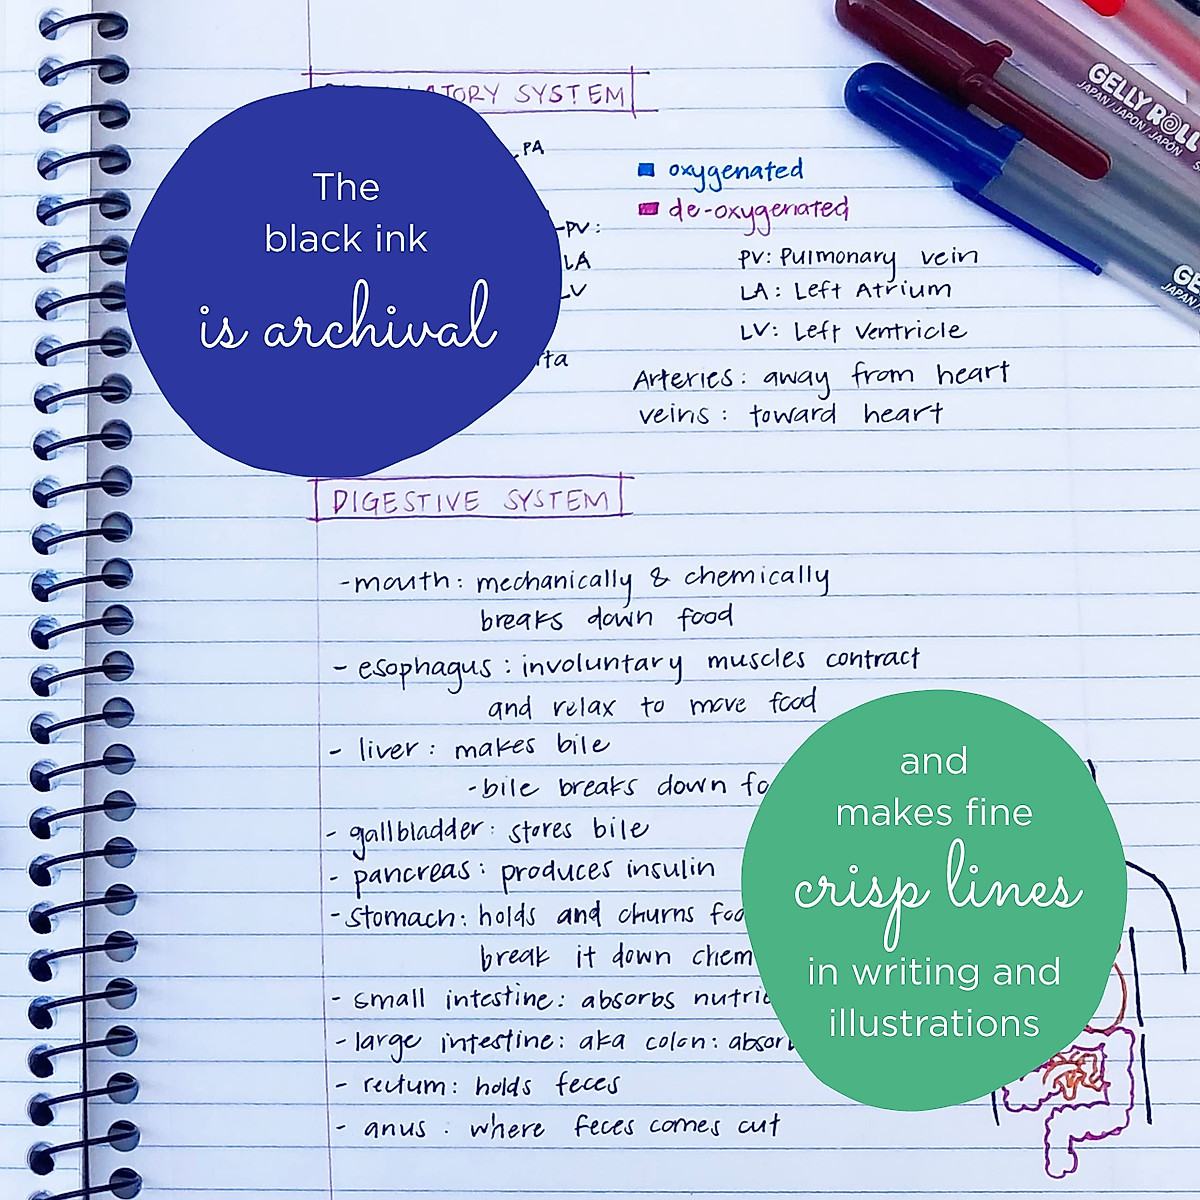 SYSTEM
PA
The
black ink
is archival
oxygenated
de-oxygenated
-PV:
LA
PV: Pulmonary vein
LA: Left Atrium
LV
LV: Left ventricle
Arteries: away from heart
veins: toward heart
DIGESTIVE SYSTEM
-mouth: mechanically & chemically
breaks down food
- esophagus: involuntary muscles contract
and relax to move food
- liver: makes bile
-bile breaks down
- gallbladder: stores bile
- pancreas: produces insulin
- stomach: holds and churns
break it down
- small intestine: absorbs
- large intestine: aka colon:
- rectum: holds feces
- anus: where feces comes out
and
makes fine
crisp lines
in writing and
illustrations
GELLY ROLL
JAPAN/JAPON/JAPÓN